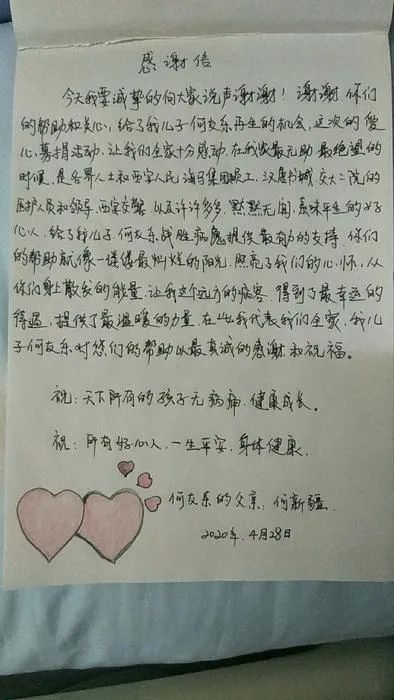 感谢信
今天我要诚挚的向大家说声谢谢！谢谢你们
的帮助和关心，给了我儿子何友乐再生的机会，这次的爱
心募捐活动，让我们全家十分感动，在我家最无助最绝望的
时候，是各界人士和西安人民海马集团职工，汉唐书城，交大二院的
医护人员和领导，西安交警以及许许多多，默默无闻，素昧平生的好
心人，给了我儿子何友乐战胜病魔提供最有力的支持，你们
的帮助就像一缕缕最灿烂的阳光，照亮了我们的心怀，从
你们身上散发的能量，让我这个远方的病客得到了最幸运的
待遇，提供了最温暖的力量，在此我代表我们全家，我儿
子何友乐对您们的帮助以最真诚的感谢和祝福。
祝：天下所有的孩子无病痛，健康成长。
祝：所有好心人，一生平安，身体健康，
何友乐的父亲：何新疆
2020年.4月28日